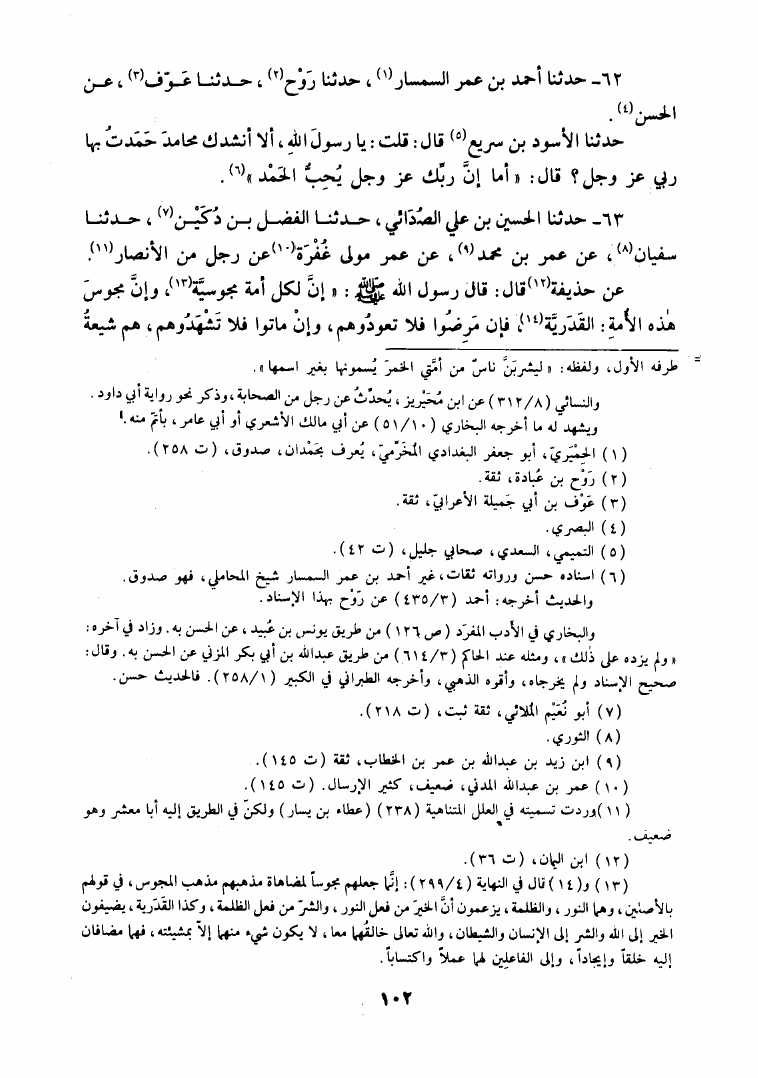 ٦٢ـ حدثنا أحمد بن عمر السمسار(١) ، حدثنا رَوْح(٢) ، حـدثنـا عَـوْف(٣) ، عـن
الحسن(٤) .
حدثنا الأسود بن سريع(٥) قال: قلت: يا رسولَ اللهِ، ألا أنشدك محامدَ حَمَدتُ بها
ربي عز وجل؟ قال: « أما إنَّ ربّك عز وجل يُحِبُّ الحَمْد »(٦) .
٦٣ـ حدثنا الحسين بن علي الصُّدَائي، حدثنـا الفضـل بـن دُكَيْـن(٧) ، حـدثنـا
سفيان(٨) ، عن عمر بن محمد(٩) ، عن عمر مولى غُفْرَة(١٠)عن رجل من الأنصار(١١).
عن حذيفة(١٢)قال: قال رسول الله ﷺ : « إنَّ لكل أمة مجوسيَّة(١٣)، وإنَّ مجوسَ
هٰذه الأُمةِ: القَدَريَّة(١٤)، فإن مَرِضُوا فلا تعودُوهم، وإنْ ماتوا فلا تَشْهَدُوهم، هم شيعةُ
= طرفه الأول، ولفظه: « ليشربَنَّ ناسٌ من أمَّتي الخمرَ يُسمونها بغير اسمها ».
والنسائي (٣١٢/٨) عن ابن مُحَيْريز، يُحدِّثُ عن رجل من الصحابة، وذكر نحو رواية أبي داود .
ويشهد له ما أخرجه البخاري (٥١/١٠) عن أبي مالك الأشعري أو أبي عامر، بأتمّ منه.
(١) الحِمْيَريّ، أبو جعفر البغدادي المُخَرِّميّ، يُعرف بحَمْدان، صدوق، (ت ٢٥٨).
(٢) رَوْح بن عُبادة، ثقة.
(٣) عَوْف بن أبي جَميلة الأعرابيّ، ثقة.
(٤) البصري.
(٥) التميمي، السعدي، صحابي جليل، (ت ٤٢).
(٦) اسناده حسن ورواته ثقات، غير أحمد بن عمر السمسار شيخ المحاملي، فهو صدوق.
والحديث أخرجه: أحمد (٤٣٥/٣) عن رَوْح بهذا الإسناد.
والبخاري في الأدب المفرَد (ص ١٢٦) من طريق يونس بن عُبيد، عن الحسن به. وزاد في آخره:
« ولم يزده على ذٰلك »، ومثله عند الحاكم (٦١٤/٣) من طريق عبدالله بن أبي بكر المزني عن الحسن به. وقال:
صحيح الإسناد ولم يخرجاه، وأقره الذهبي، وأخرجه الطبراني في الكبير (٢٥٨/١). فالحديث حسن.
(٧) أبو نُعَيْم المُلائي، ثقة ثبت، (ت ٢١٨).
(٨) الثوري.
(٩) ابن زيد بن عبدالله بن عمر بن الخطاب، ثقة (ت ١٤٥).
(١٠) عمر بن عبدالله المدني، ضعيف، كثير الإرسال. (ت ١٤٥).
(١١)وردت تسميته في العلل المتناهية (٢٣٨) (عطاء بن يسار) ولكنّ في الطريق إليه أبا معشر وهو
ضعيف.
(١٢) ابن اليمان، (ت ٣٦).
(١٣) و(١٤) قال في النهاية (٢٩٩/٤): إنَّما جعلهم مجوساً لمضاهاة مذهبهم مذهب المجوس، في قولهم
بالأصلَين، وهما النور، والظلمة، يزعمون أنَّ الخيرَ من فعل النور، والشرّ من فعل الظلمة، وكذا القَدَرية، يضيفون
الخير إلى الله والشر إلى الإنسان والشيطان، والله تعالى خالقُهما معا، لا يكون شيء منهما إلاّ بمشيئته، فهما مضافان
إليه خلقاً وإيجاداً، وإلى الفاعلِين لهما عملاً واكتساباً.
١٠٢